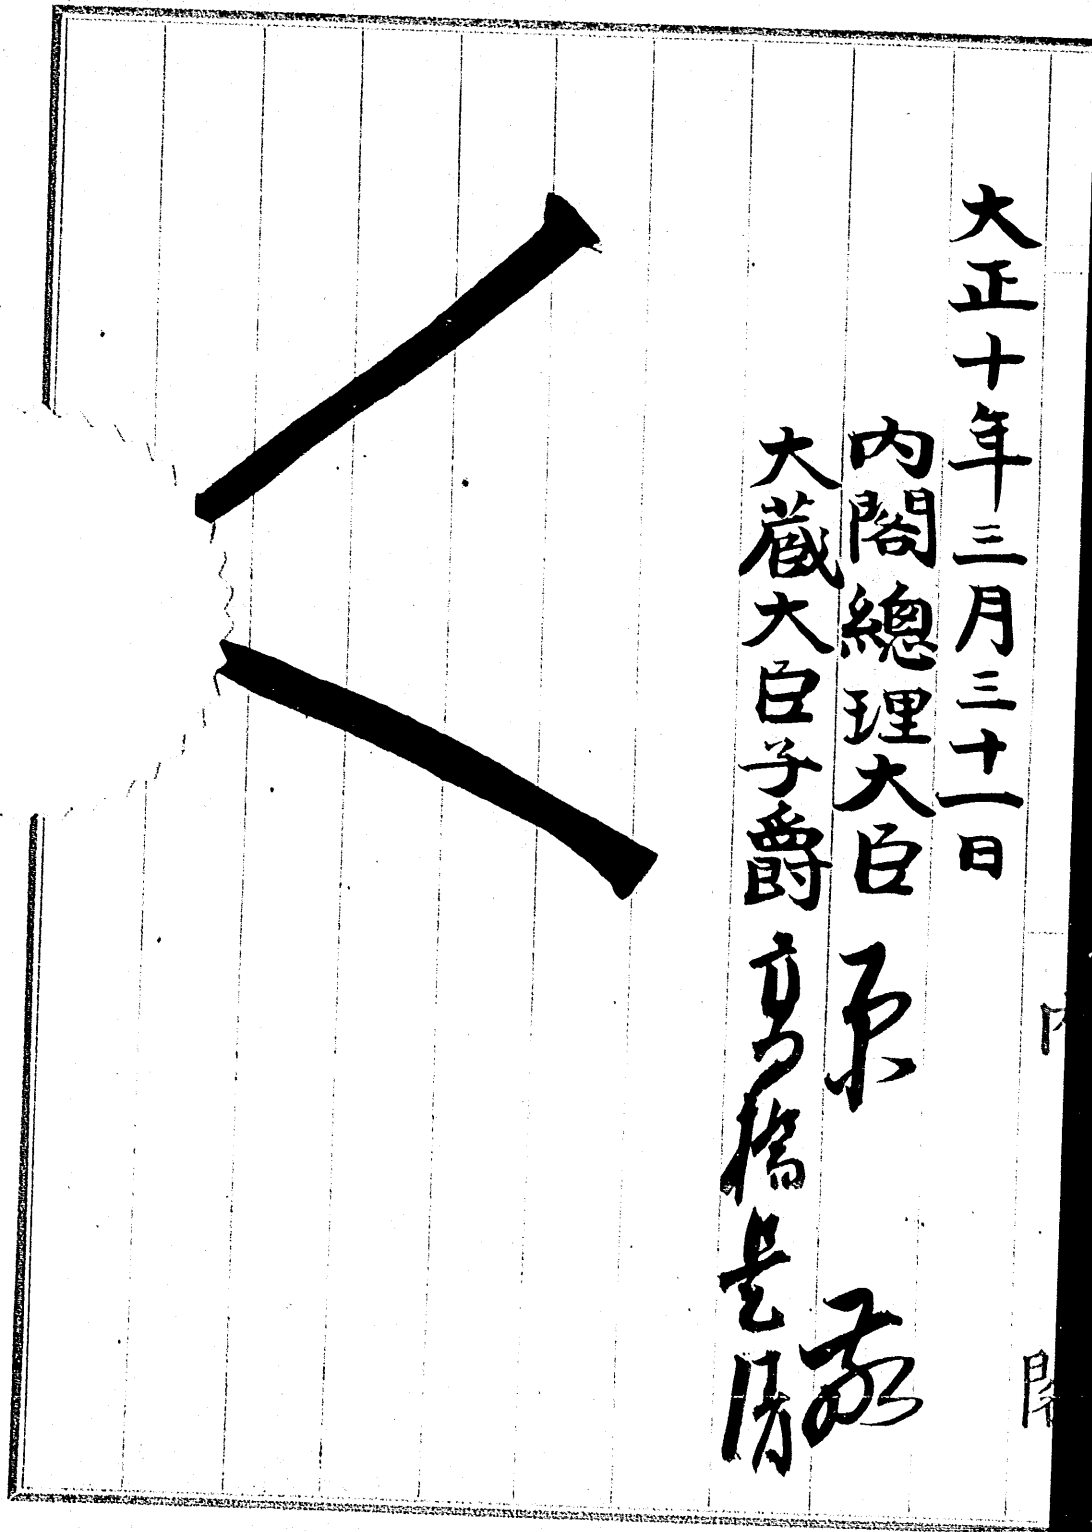 大正十年三月三十一日
內閣總理大臣 原 敬
大藏大臣子爵 高橋是清
內閣